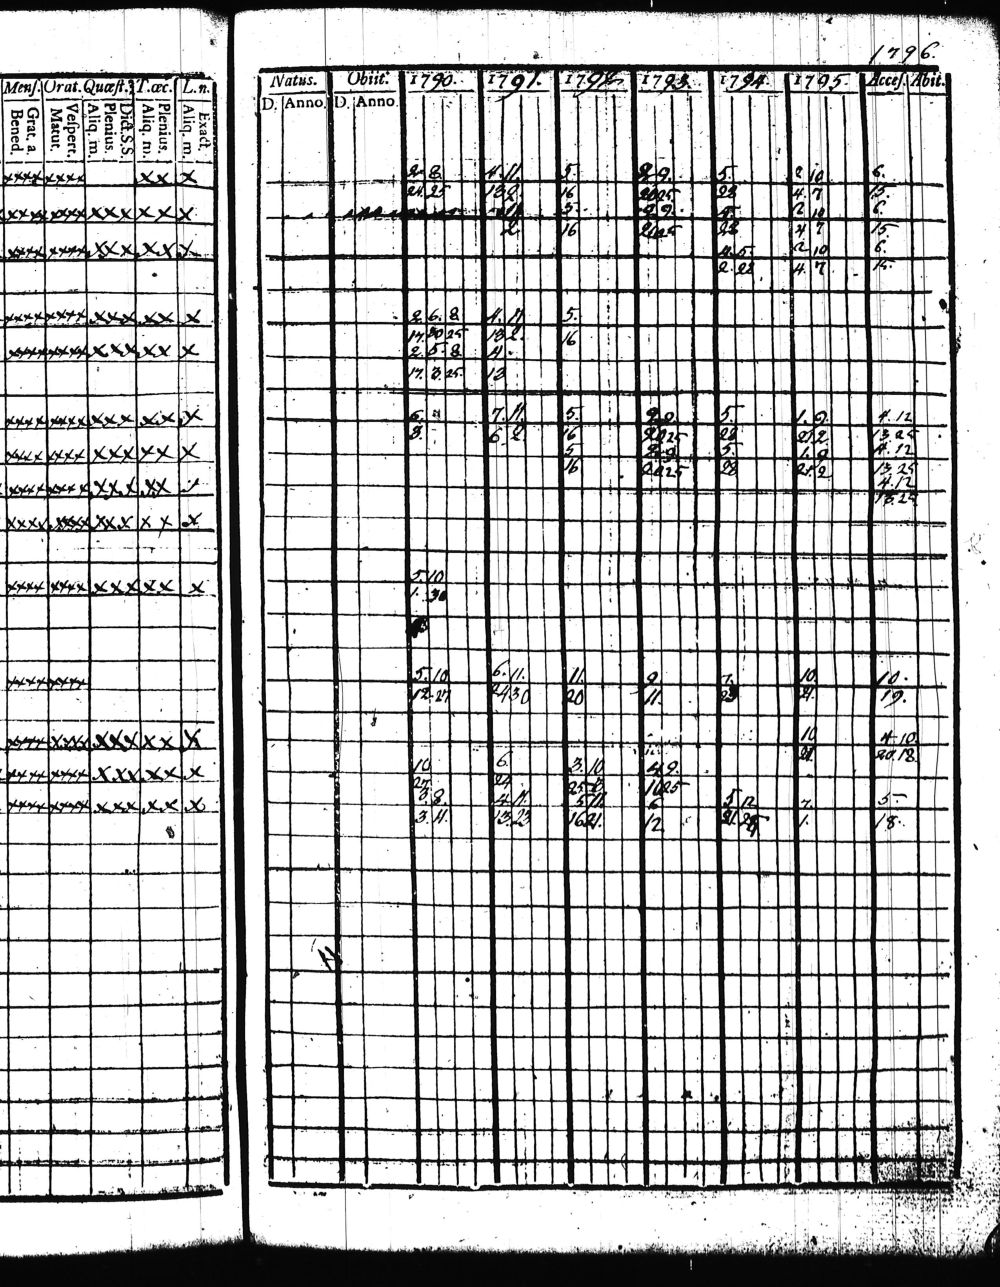 1796.
Mens. Orat. Quæst. T.œc. L.n.
Grat. a. Bened. Vespert. Matut. Dict. S.S. Plenius. Aliq. m. Plenius. Aliq. m. Exact. Aliq. m.
Natus. Obiit. 1790. 1791. 1792. 1793. 1794. 1795. Acces. Abit.
D. Anno. D. Anno.
xxxx xxxx xx x 2. 8. 4. 11. 5. 2. 9. 5. 2 10 6.
24. 25 13 2. 16 20 25 28 4. 7 15
xxxx xxxx xxx xx x 11 5. 2. 9. 2 10 6.
2. 16 20 25 28 4 7 15
xxxx xxxx xxx xx x 4. 5. 2 10 6.
2. 28 4. 7 15.
xxxx xxxx xxx xx x 2. 6. 8 4. 11. 5.
17. 30 25 13 2. 16
xxxx xxxx xxx xx x 2. 5. 8 4.
17. 3. 25 13
xxxx xxxx xxx xx x 6. 7. 11. 5. 2. 9. 5. 1. 9. 4. 12
3. 6 2 16 20 25 28 21. 2 13. 25
xxxx xxxx xxx xx x 5 2. 9 5. 1. 9 4. 12
16 20 25 28 21. 2 13. 25
xxxx xxxx xxx xx 4. 12
13. 25
xxxx xxxx xxx xx x
xxxx xxxx xxx xx x 5. 10
1. 30
xxxx xxxx 5. 10 6. 11. 11. 9. 7. 10. 10.
12. 27 24 30 20 11. 23 21. 19.
xxxx xxxx xxx xx x 10 4 10.
21. 20. 18.
xxxx xxxx xxx xx x 10 6. 3. 10 4. 9.
27 24 10 25
xxxx xxxx xxx xx x 3. 8. 4. 11. 5. 11. 6 5. 12 7. 5
3. 11. 13. 23 16 21. 12 1. 18.